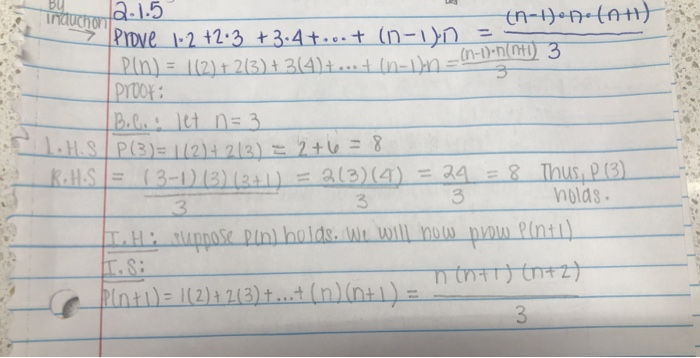 By
induction →
2.1.5
Prove 1·2 + 2·3 + 3·4 + ... + (n-1)·n = (n-1)·n·(n+1) / 3
P(n) = 1(2) + 2(3) + 3(4) + ... + (n-1)·n = (n-1)·n(n+1) / 3
Proof:
B.C.: let n = 3
L.H.S P(3) = 1(2) + 2(3) = 2 + 6 = 8
R.H.S = (3-1)(3)(3+1) / 3 = 2(3)(4) / 3 = 24 / 3 = 8 Thus, P(3)
holds.
I.H: suppose P(n) holds. We will now prove P(n+1)
I.S:
P(n+1) = 1(2) + 2(3) + ... + (n)(n+1) = n(n+1)(n+2) / 3